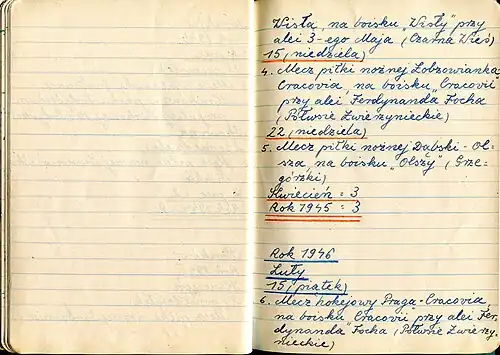 Wisła, na boisku „Wisły” przy
alei 3-ego Maja (Czarna Wieś)
15 (niedziela)
4. Mecz piłki nożnej Łobzowianka-
Cracovia, na boisku „Cracovii”
przy alei Ferdynanda Focha
(Półwsie Zwierzynieckie)
22 (niedziela)
5. Mecz piłki nożnej Dąbski - Ol-
sza, na boisku „Olszy” (Grze-
górzki)
Kwiecień = 3
Rok 1945 = 3
Rok 1946
Luty
15 (piątek)
6. Mecz hokejowy Praga-Cracovia,
na boisku „Cracovii” przy alei Fer-
dynanda Focha (Półwsie Zwierzy-
nieckie)